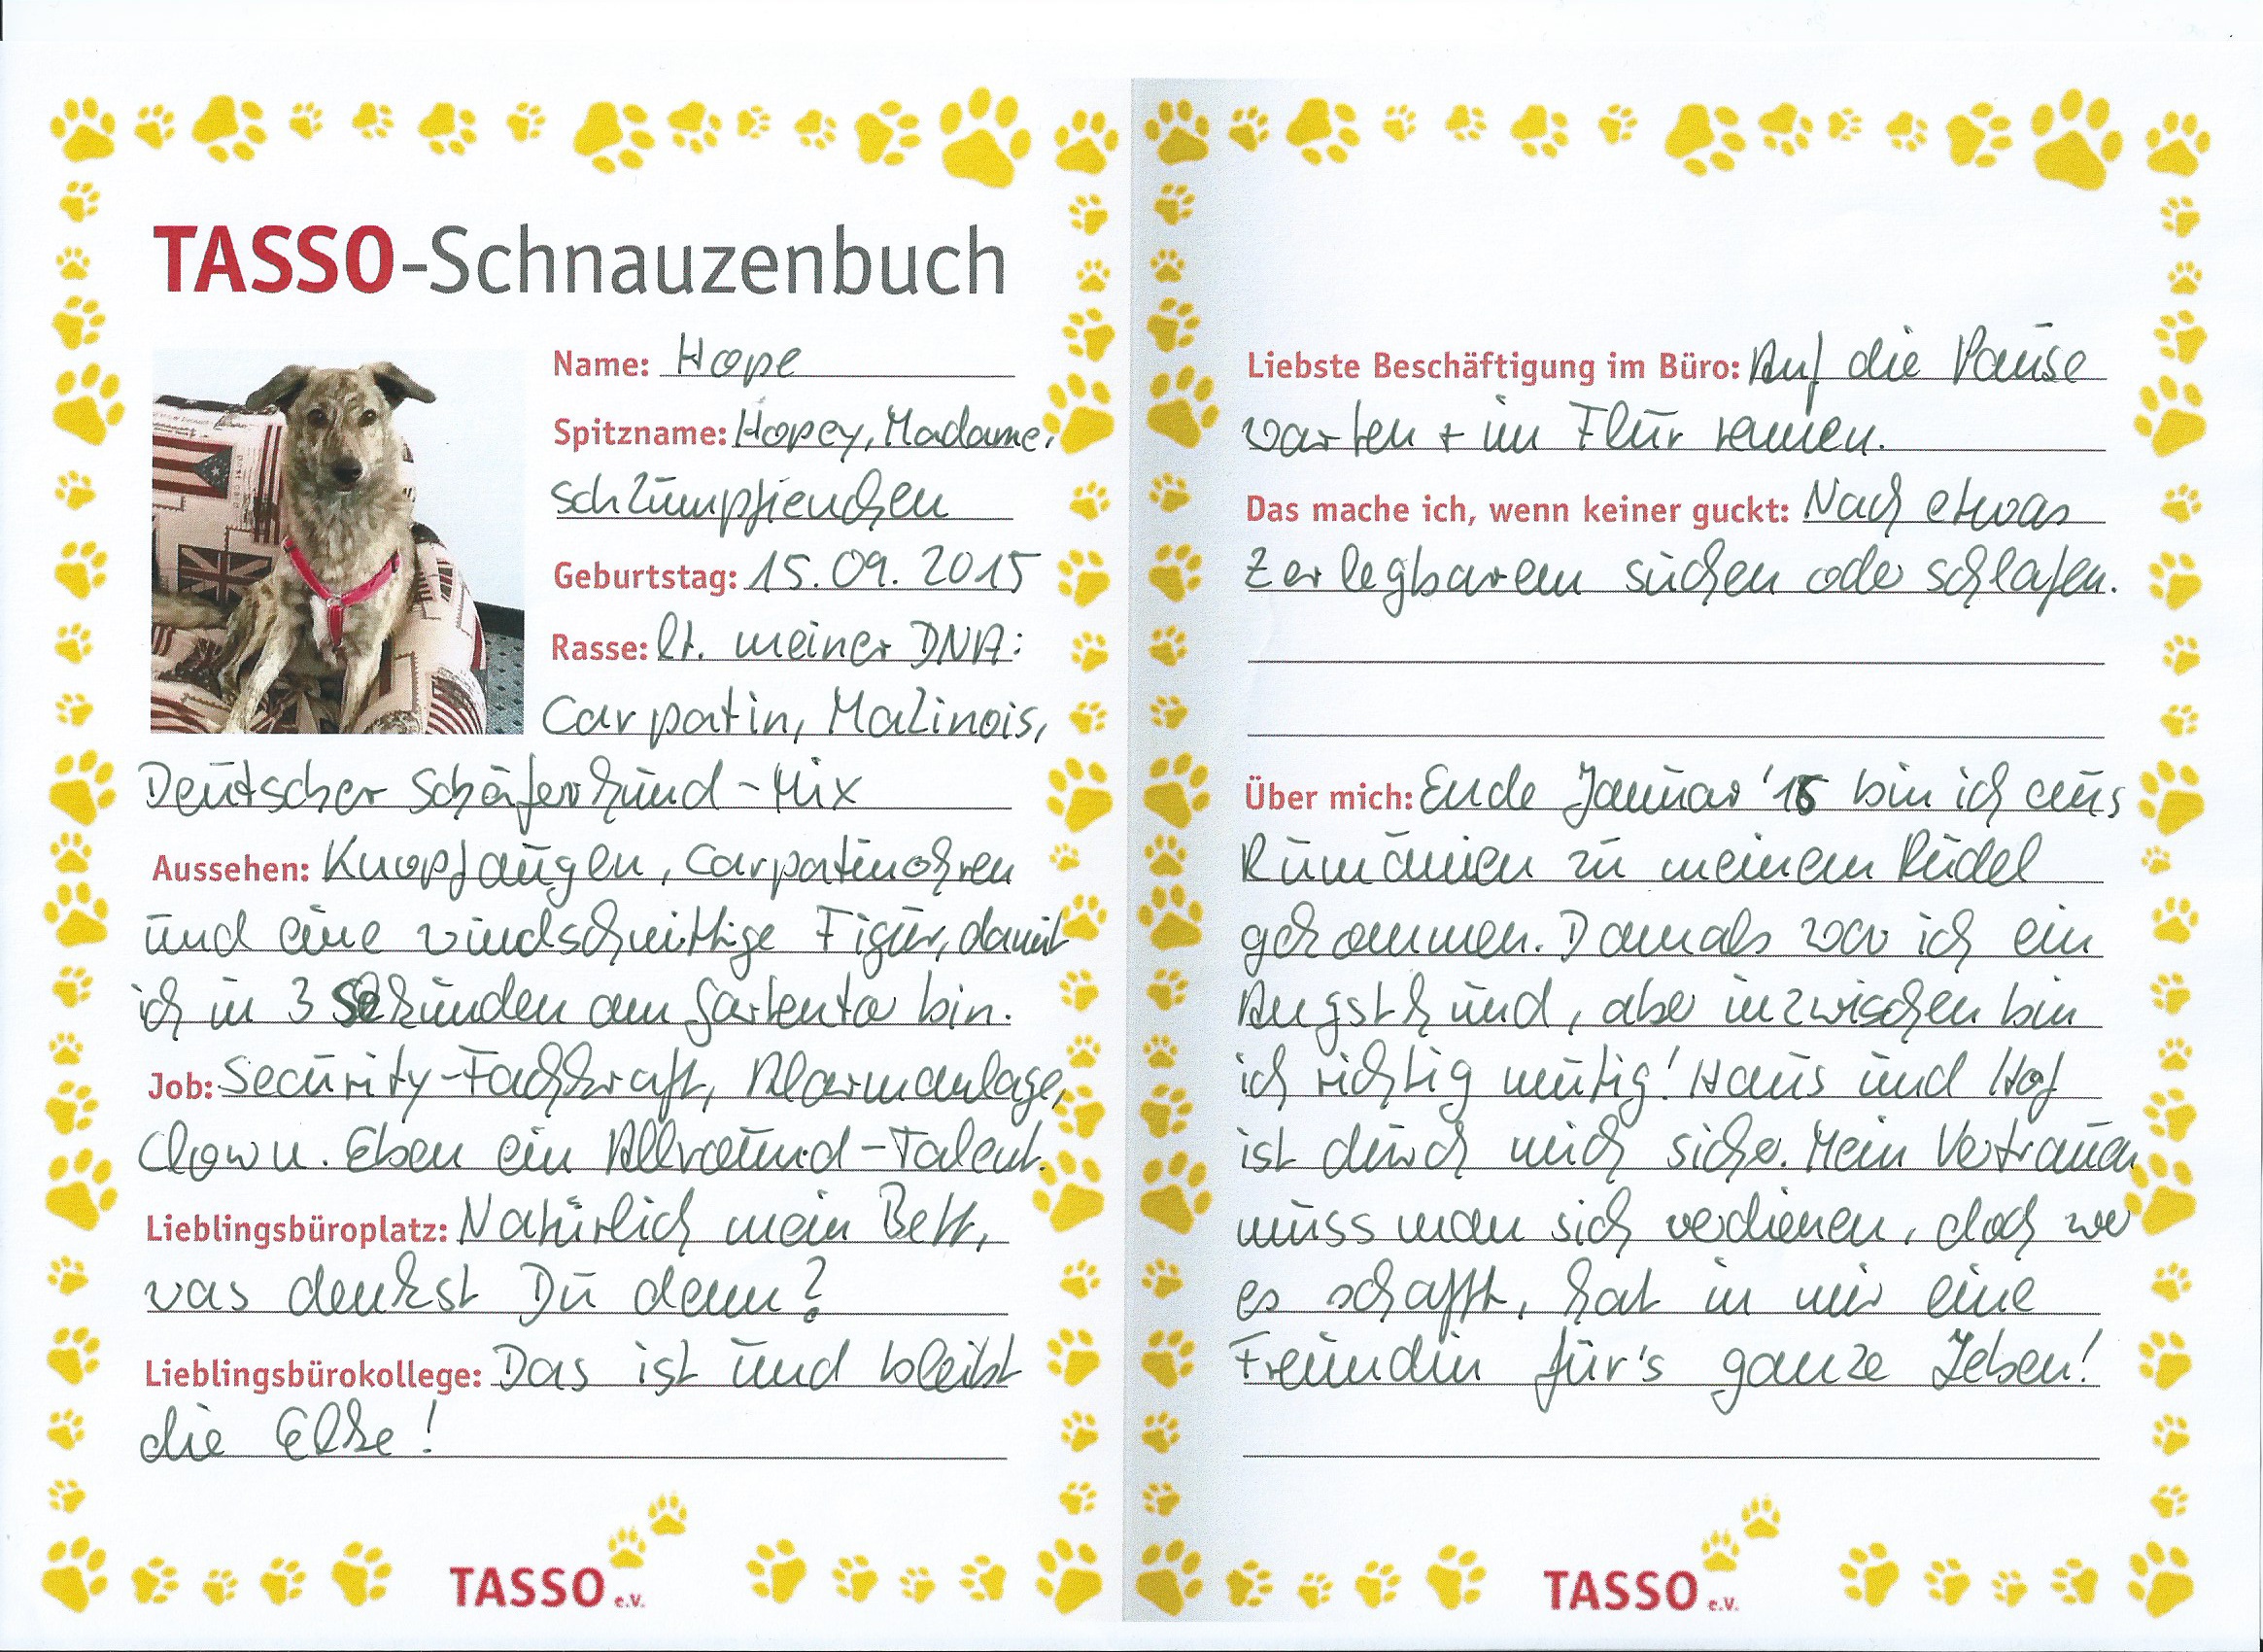 TASSO-Schnauzenbuch
Name: Hope
Spitzname: Hopey, Madame,
Schlümpfienchen
Geburtstag: 15.09.2015
Rasse: lt. meiner DNA:
Carpatin, Malinois,
Deutscher Schäferhund-Mix
Aussehen: Knopfaugen, Carpatinohren
und eine windschnittige Figur, damit
ich in 3 Sekunden am Gartentor bin.
Job: Security-Fachkraft, Alarmanlage,
Clown. Eben ein Allround-Talent.
Lieblingsbüroplatz: Natürlich mein Bett,
was denkst Du denn?
Lieblingsbürokollege: Das ist und bleibt
die Elke!
TASSO e.V.
Liebste Beschäftigung im Büro: Auf die Pause
warten + im Flur rennen.
Das mache ich, wenn keiner guckt: Nach etwas
Zerlegbarem suchen oder schlafen.
Über mich: Ende Januar '16 bin ich aus
Rumänien zu meinem Rudel
gekommen. Damals war ich ein
Angsthund, aber inzwischen bin
ich richtig mutig! Haus und Hof
ist durch mich sicher. Mein Vertrauen
muss man sich verdienen, doch wer
es schafft, hat in mir eine
Freundin für's ganze Leben!
TASSO e.V.